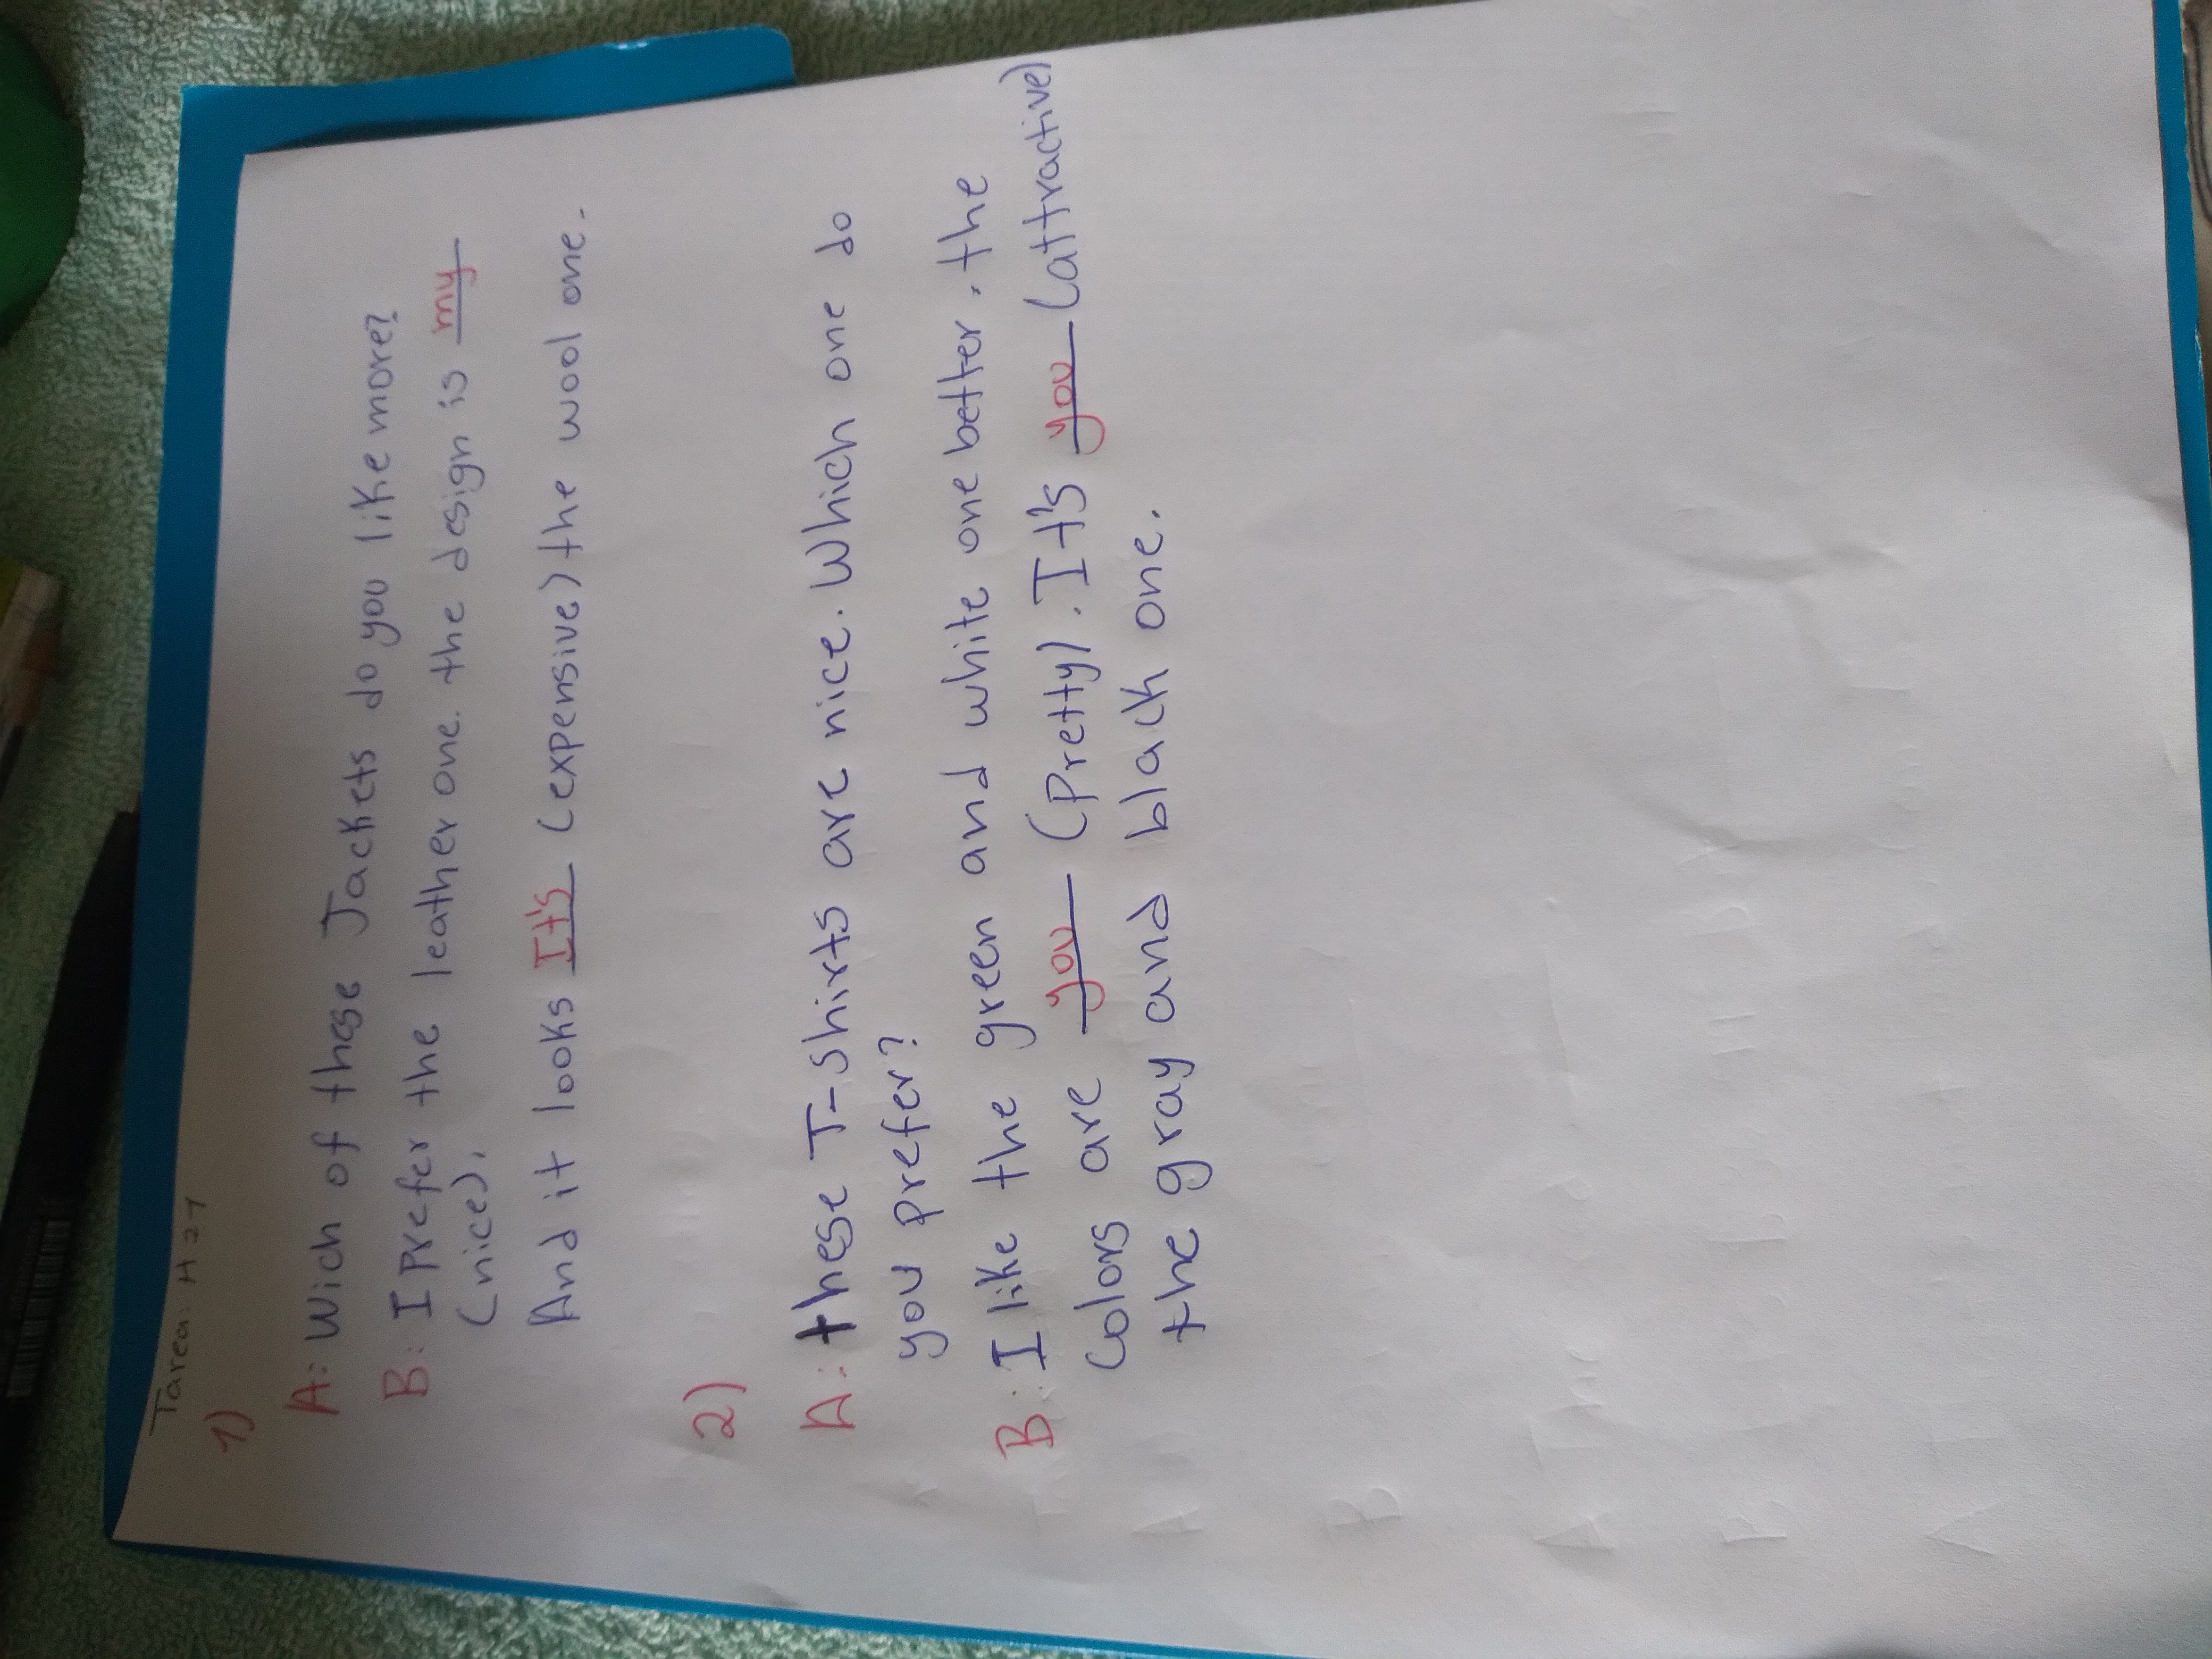 Tarea: H 27
1)
A: Wich of these Jackets do you like more?
B: I Prefer the leather one. the design is my
(nice),
And it looks It's (expensive) the wool one.
2)
A: these T-shirts are nice. Which one do
you prefer?
B: I like the green and white one better. the
Colors are you (Pretty). It's you (attractive)
the gray and black one.